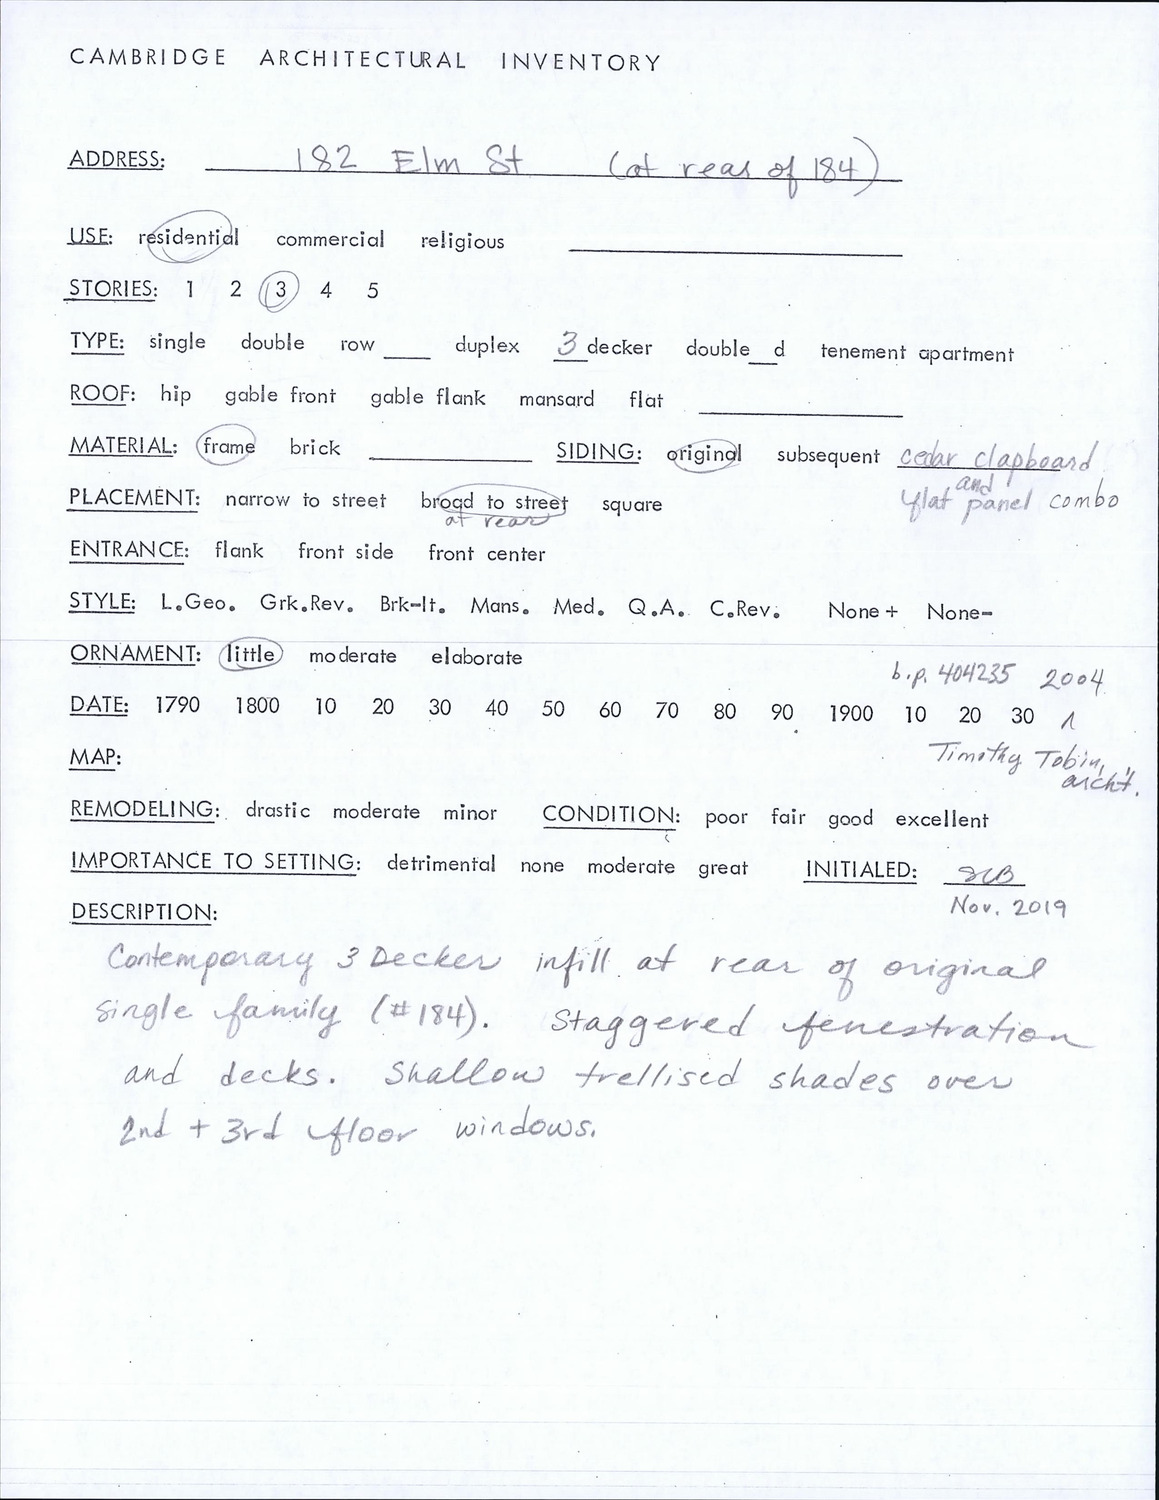 CAMBRIDGE ARCHITECTURAL INVENTORY
ADDRESS: 182 Elm St (at rear of 184)
USE: residential commercial religious
STORIES: 1 2 3 4 5
TYPE: single double row ____ duplex 3 decker double__d tenement apartment
ROOF: hip gable front gable flank mansard flat
MATERIAL: frame brick SIDING: original subsequent cedar clapboard
and
PLACEMENT: narrow to street broad to street square flat panel combo
at rear
ENTRANCE: flank front side front center
STYLE: L.Geo. Grk.Rev. Brk-It. Mans. Med. Q.A. C.Rev. None+ None-
ORNAMENT: little moderate elaborate b.p. 404235 2004
DATE: 1790 1800 10 20 30 40 50 60 70 80 90 1900 10 20 30
MAP: Timothy Tobin,
archt.
REMODELING: drastic moderate minor CONDITION: poor fair good excellent
IMPORTANCE TO SETTING: detrimental none moderate great INITIALED:
Nov. 2019
DESCRIPTION:
Contemporary 3 Decker infill at rear of original
single family (#184). Staggered fenestration
and decks. Shallow trellised shades over
2nd + 3rd floor windows.